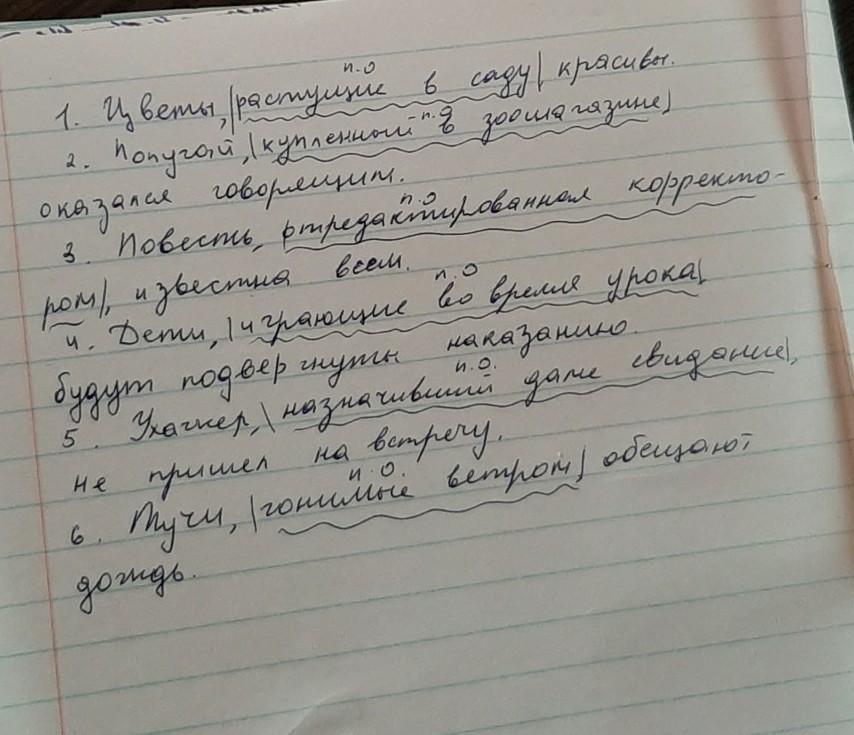 п.о
1. Цветы, |растущие в саду| красивы.
п.о
2. Попугай, |купленный в зоомагазине|
оказался говорящим.
п.о
3. Повесть, отредактированная корректо-
ром|, известна всем.
п.о
4. Дети, |играющие во время урока|
будут подвергнуты наказанию.
п.о.
5. Ухажер, |назначивший даме свидание|,
не пришел на встречу.
п.о.
6. Тучи, |гонимые ветром| обещают
дождь.